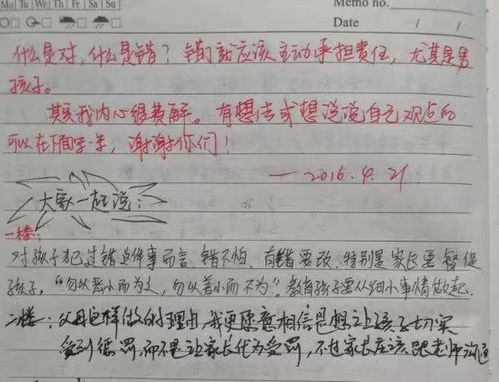 Mo Tu We Th Fr Sa Su
Memo No.
Date / /
什么是对,什么是错?错了就应该主动承担责任,尤其是男
孩子。
其实我内心很费解。有想法或想说说自己观点的
可以在下面写一写,谢谢你们!
— 2016.4.21
大家一起说:
一楼:
对孩子犯过错这件事而言,错不怕,有错要改,特别是家长要督促
孩子,“勿以恶小而为之,勿以善小而不为”。教育孩子要从细小事情做起.
二楼:父母这样做的理由,我更愿意相信是想让孩子切实
受到惩罚,而不是让家长代为受罚,不过家长应该跟老师沟通